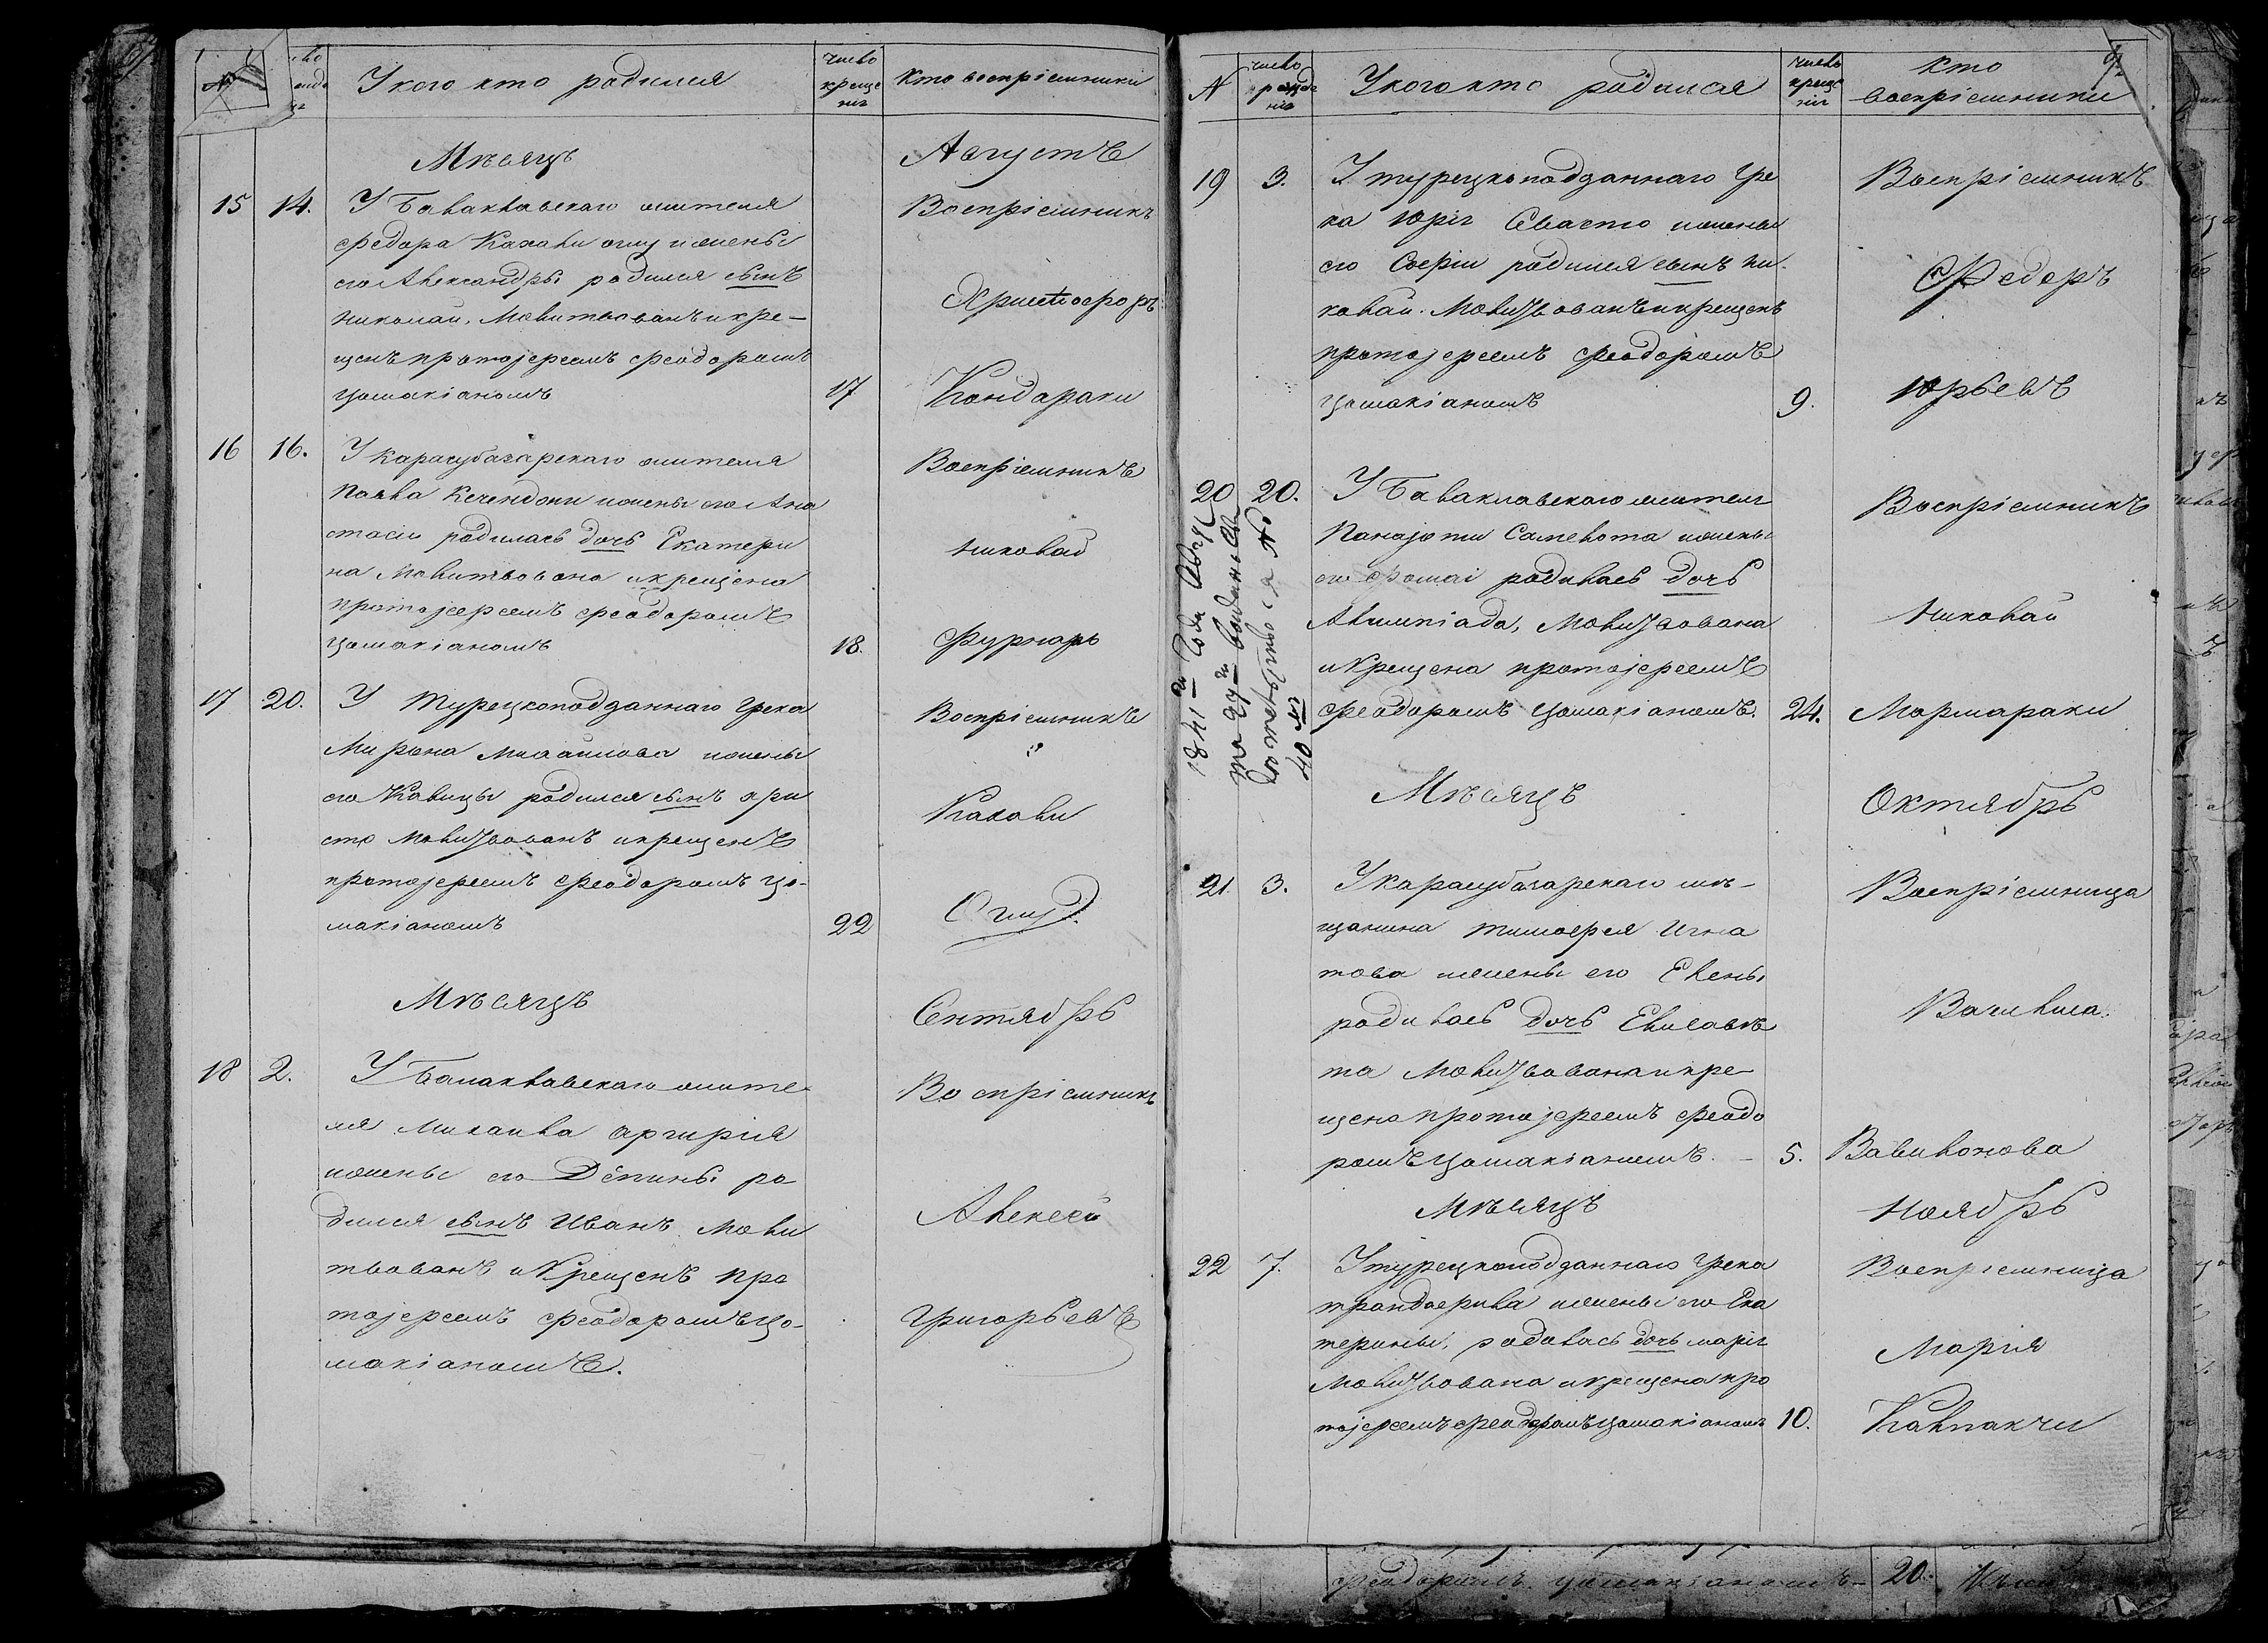 №
У кого кто родился
число крещенія
Кто воспріемники
Мѣсяцъ
Августъ
15 14. У Балаклавскаго жителя
Федора Калави оглу и жены
его Александры родился сынъ
Николай, Молитвованъ и кре-
щенъ протоіереемъ Феодоромъ
Цомакіаномъ 17
Воспріемникъ
Христофоръ
Кондараки
16 16. У Карасубазарскаго жителя
Павла и жены его Ана
стасіи родилась дочь Екатери
на Молитвована и крещена
протоіереемъ Феодоромъ
Цомакіаномъ 18.
Воспріемникъ
Николай
Фурнаръ
17 20. У Турецкоподданнаго Грека
Мирона Михайлова и жены
его родился сынъ Хри
сто Молитвованъ и крещенъ
протоіереемъ Феодоромъ Цо-
макіаномъ 22
Воспріемникъ
Калави
Оглу
Мѣсяцъ
Сентябрь
18 2. У Балаклавскаго жите-
ля Михаила Аргирія
и жены его Депины ро
дился сынъ Иванъ Моли
твованъ и Крещенъ про
тоіереемъ Феодоромъ Цо-
макіаномъ.
Воспріемникъ
Алексей
Григорьевъ
№
число рожденія
У кого кто родился
число крещенія
Кто
воспріемники
19 3. У турецкоподданнаго Гре
ка Юрія Свасто и жены
его Софіи родился сынъ Ни-
колай. Молитвованъ и крещенъ
протоіереемъ Феодоромъ
Цомакіаномъ 9.
Воспріемникъ
Федоръ
Юрьевъ
20 20. У Балаклавскаго жителя
Панаіоти и жены
его родилась дочь
Алимпіада, Молитвована
и Крещена протоіереемъ
Феодоромъ Цомакіаномъ. 24.
Воспріемникъ
Николай
Мормараки
1841 года Авгус
та 27 выдано сви
детельство за №
40
Мѣсяцъ
Октябрь
21. 3. У Карасубазарскаго мѣ-
щанина Тимофея Игна
това и жены его Елены
родилась дочь Елисаве
та Молитвована и кре-
щена протоіереемъ Феодо
ромъ Цомакіаномъ. 5.
Воспріемница
Василиса
Вавилонова
Мѣсяцъ
Ноябрь
22 7. У турецкоподданнаго Грека
трандафила и жены его Ека
терины, родилась дочь Марія
Молитвована и крещена про
тоіереемъ Феодоромъ Цомакіаномъ 10.
Воспріемница
Марія
Калпакчи
Феодоромъ Цомакіаномъ 20.